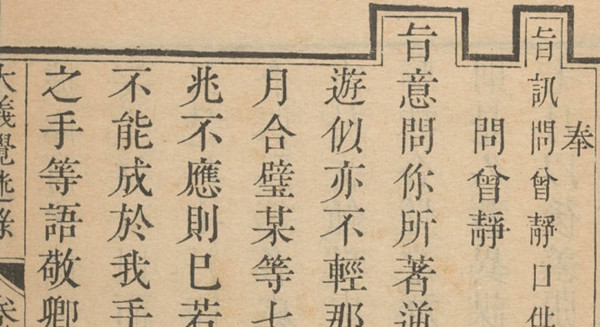 奉
旨訊問曾靜口供
問曾靜
旨意問你所著逆
遊似亦不輕那
月合璧某等七
兆不應則已若
不能成於我手
之手等語敬卿
大義覺迷錄 卷